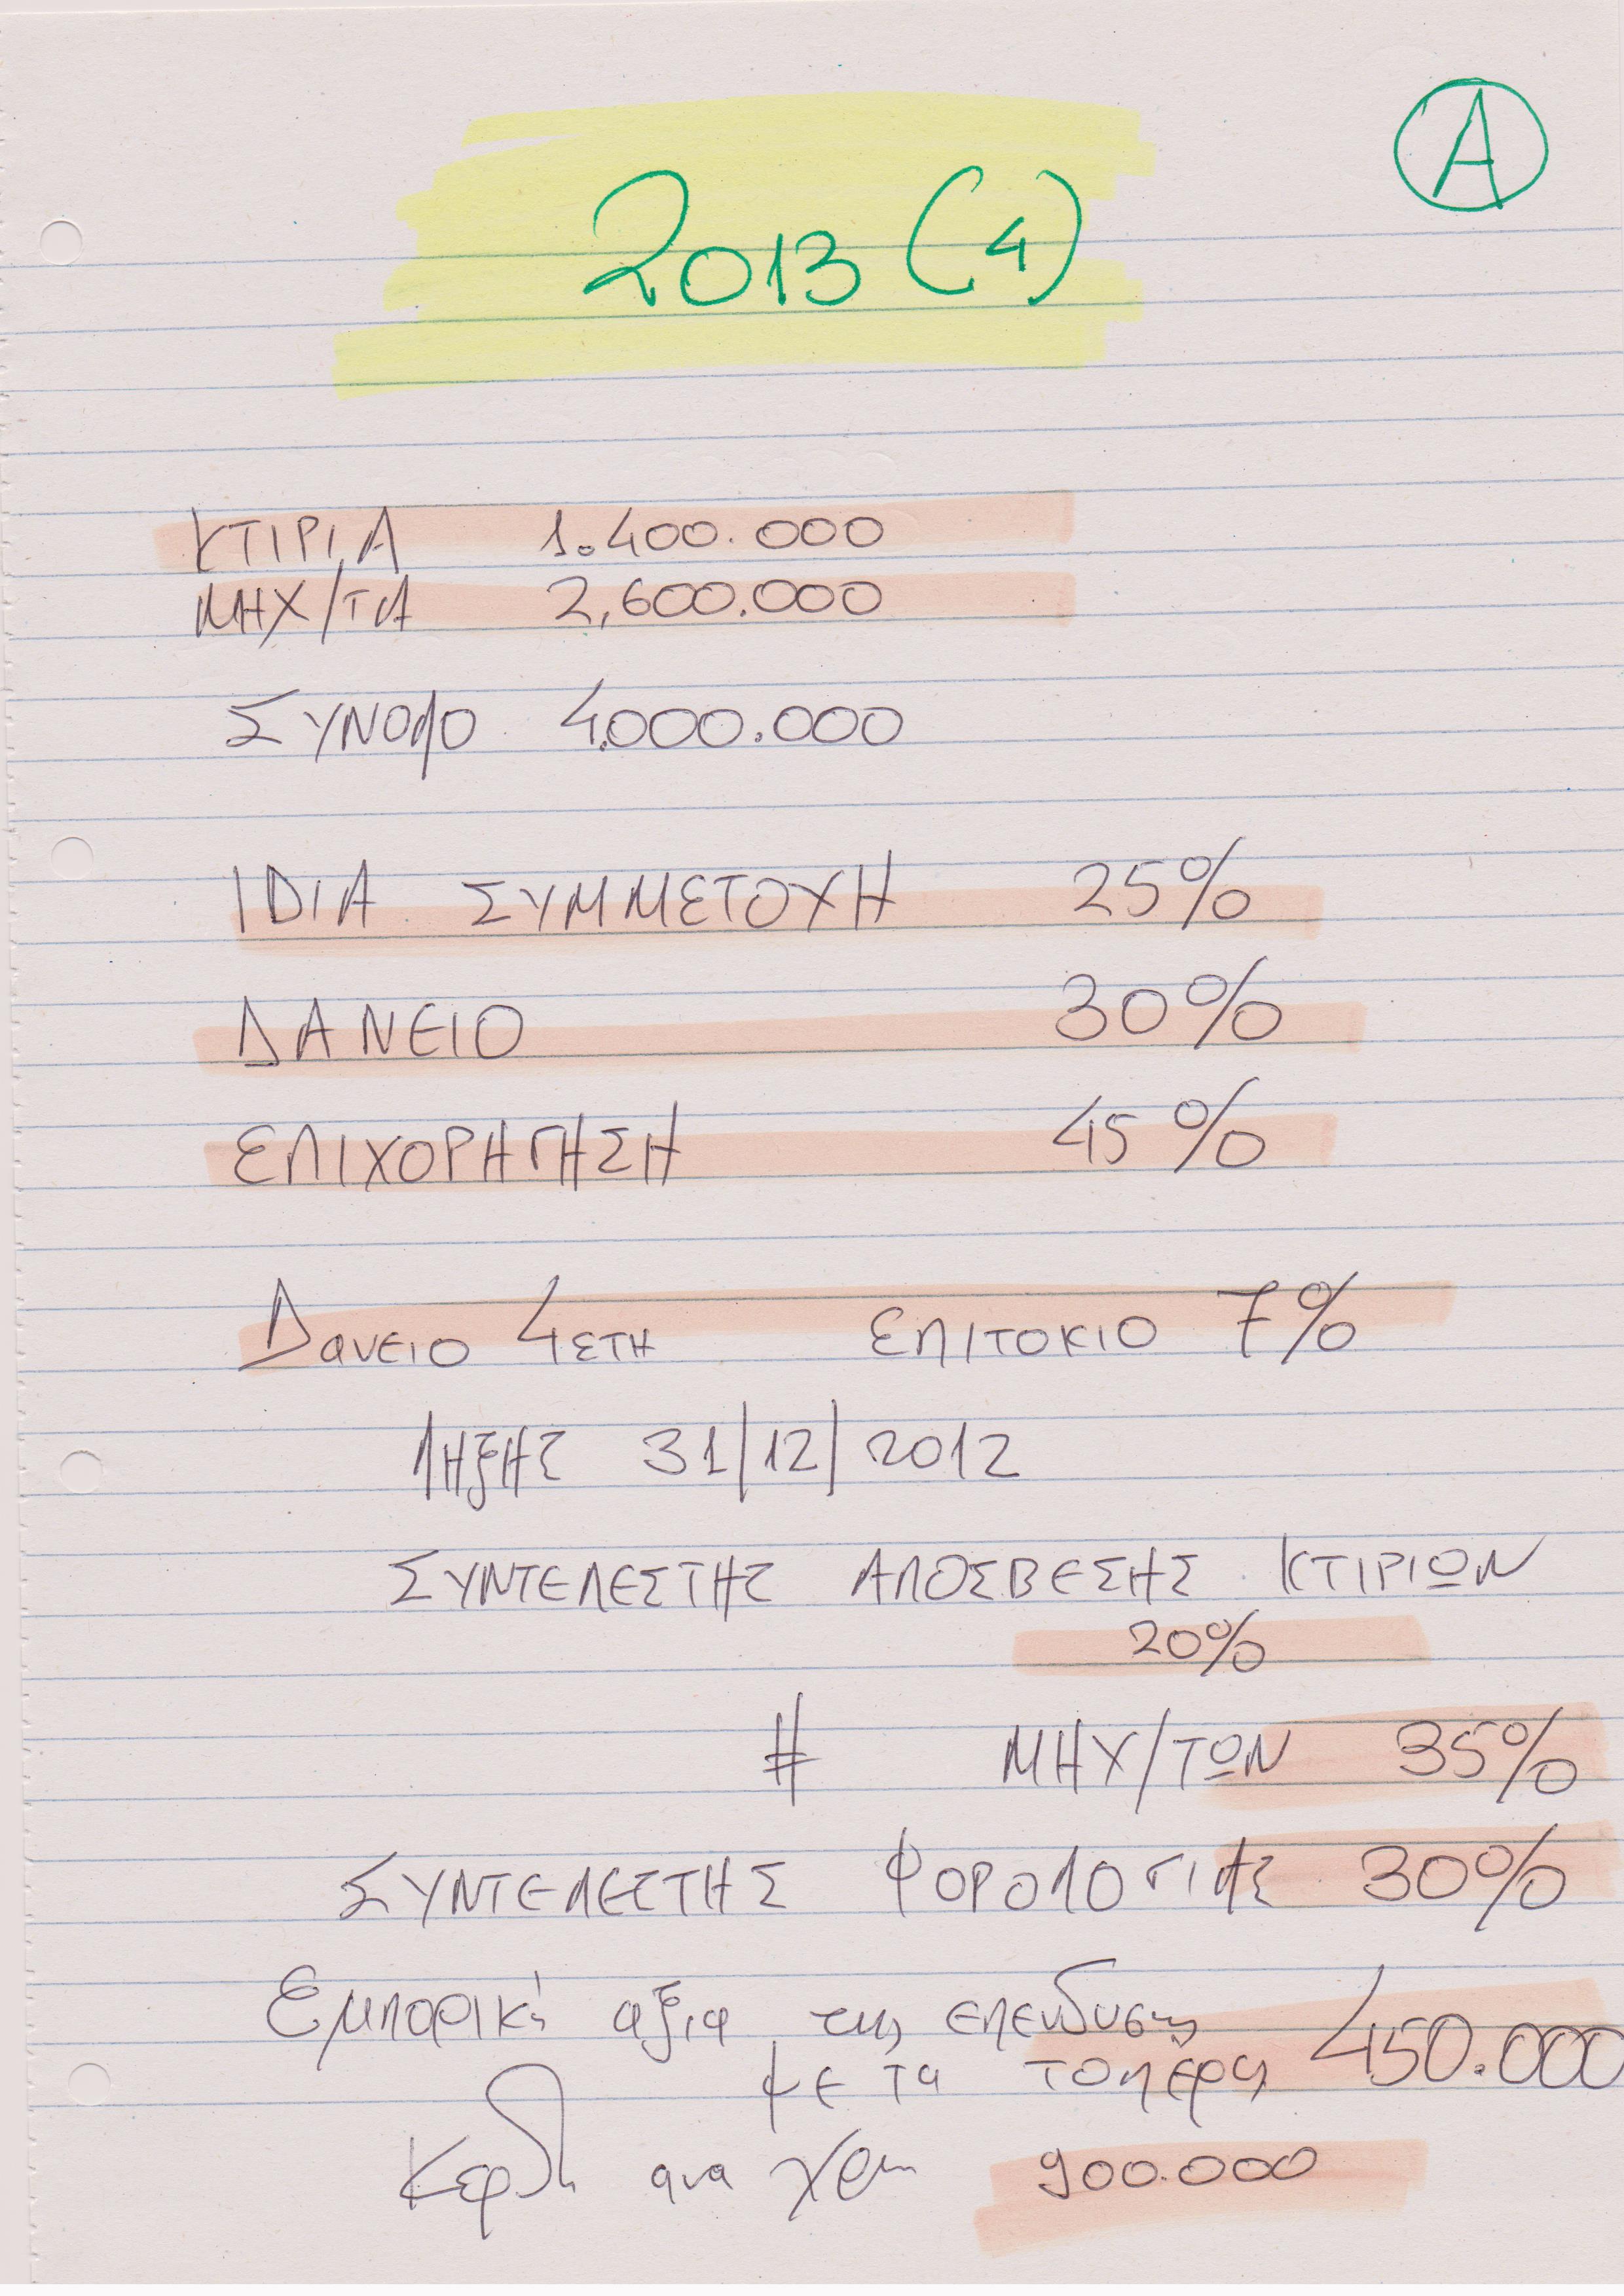 A
2013 (4)
ΚΤΙΡΙΑ 1.400.000
ΜΗΧ/ΤΑ 2,600.000
ΣΥΝΟΛΟ 4.000.000
ΙΔΙΑ ΣΥΜΜΕΤΟΧΗ 25%
ΔΑΝΕΙΟ 30%
ΕΠΙΧΟΡΗΓΗΣΗ 45%
Δανειο 4 ΕΤΗ ΕΠΙΤΟΚΙΟ 7%
ΛΗΞΗΣ 31/12/2012
ΣΥΝΤΕΛΕΣΤΗΣ ΑΠΟΣΒΕΣΗΣ ΚΤΙΡΙΩΝ
20%
# ΜΗΧ/ΤΩΝ 35%
ΣΥΝΤΕΛΕΣΤΗΣ ΦΟΡΟΛΟΓΙΑΣ 30%
Εμπορική αξια της επενδυσης 450.000
με τα το περας
Κερδη ανα χρηση 900.000